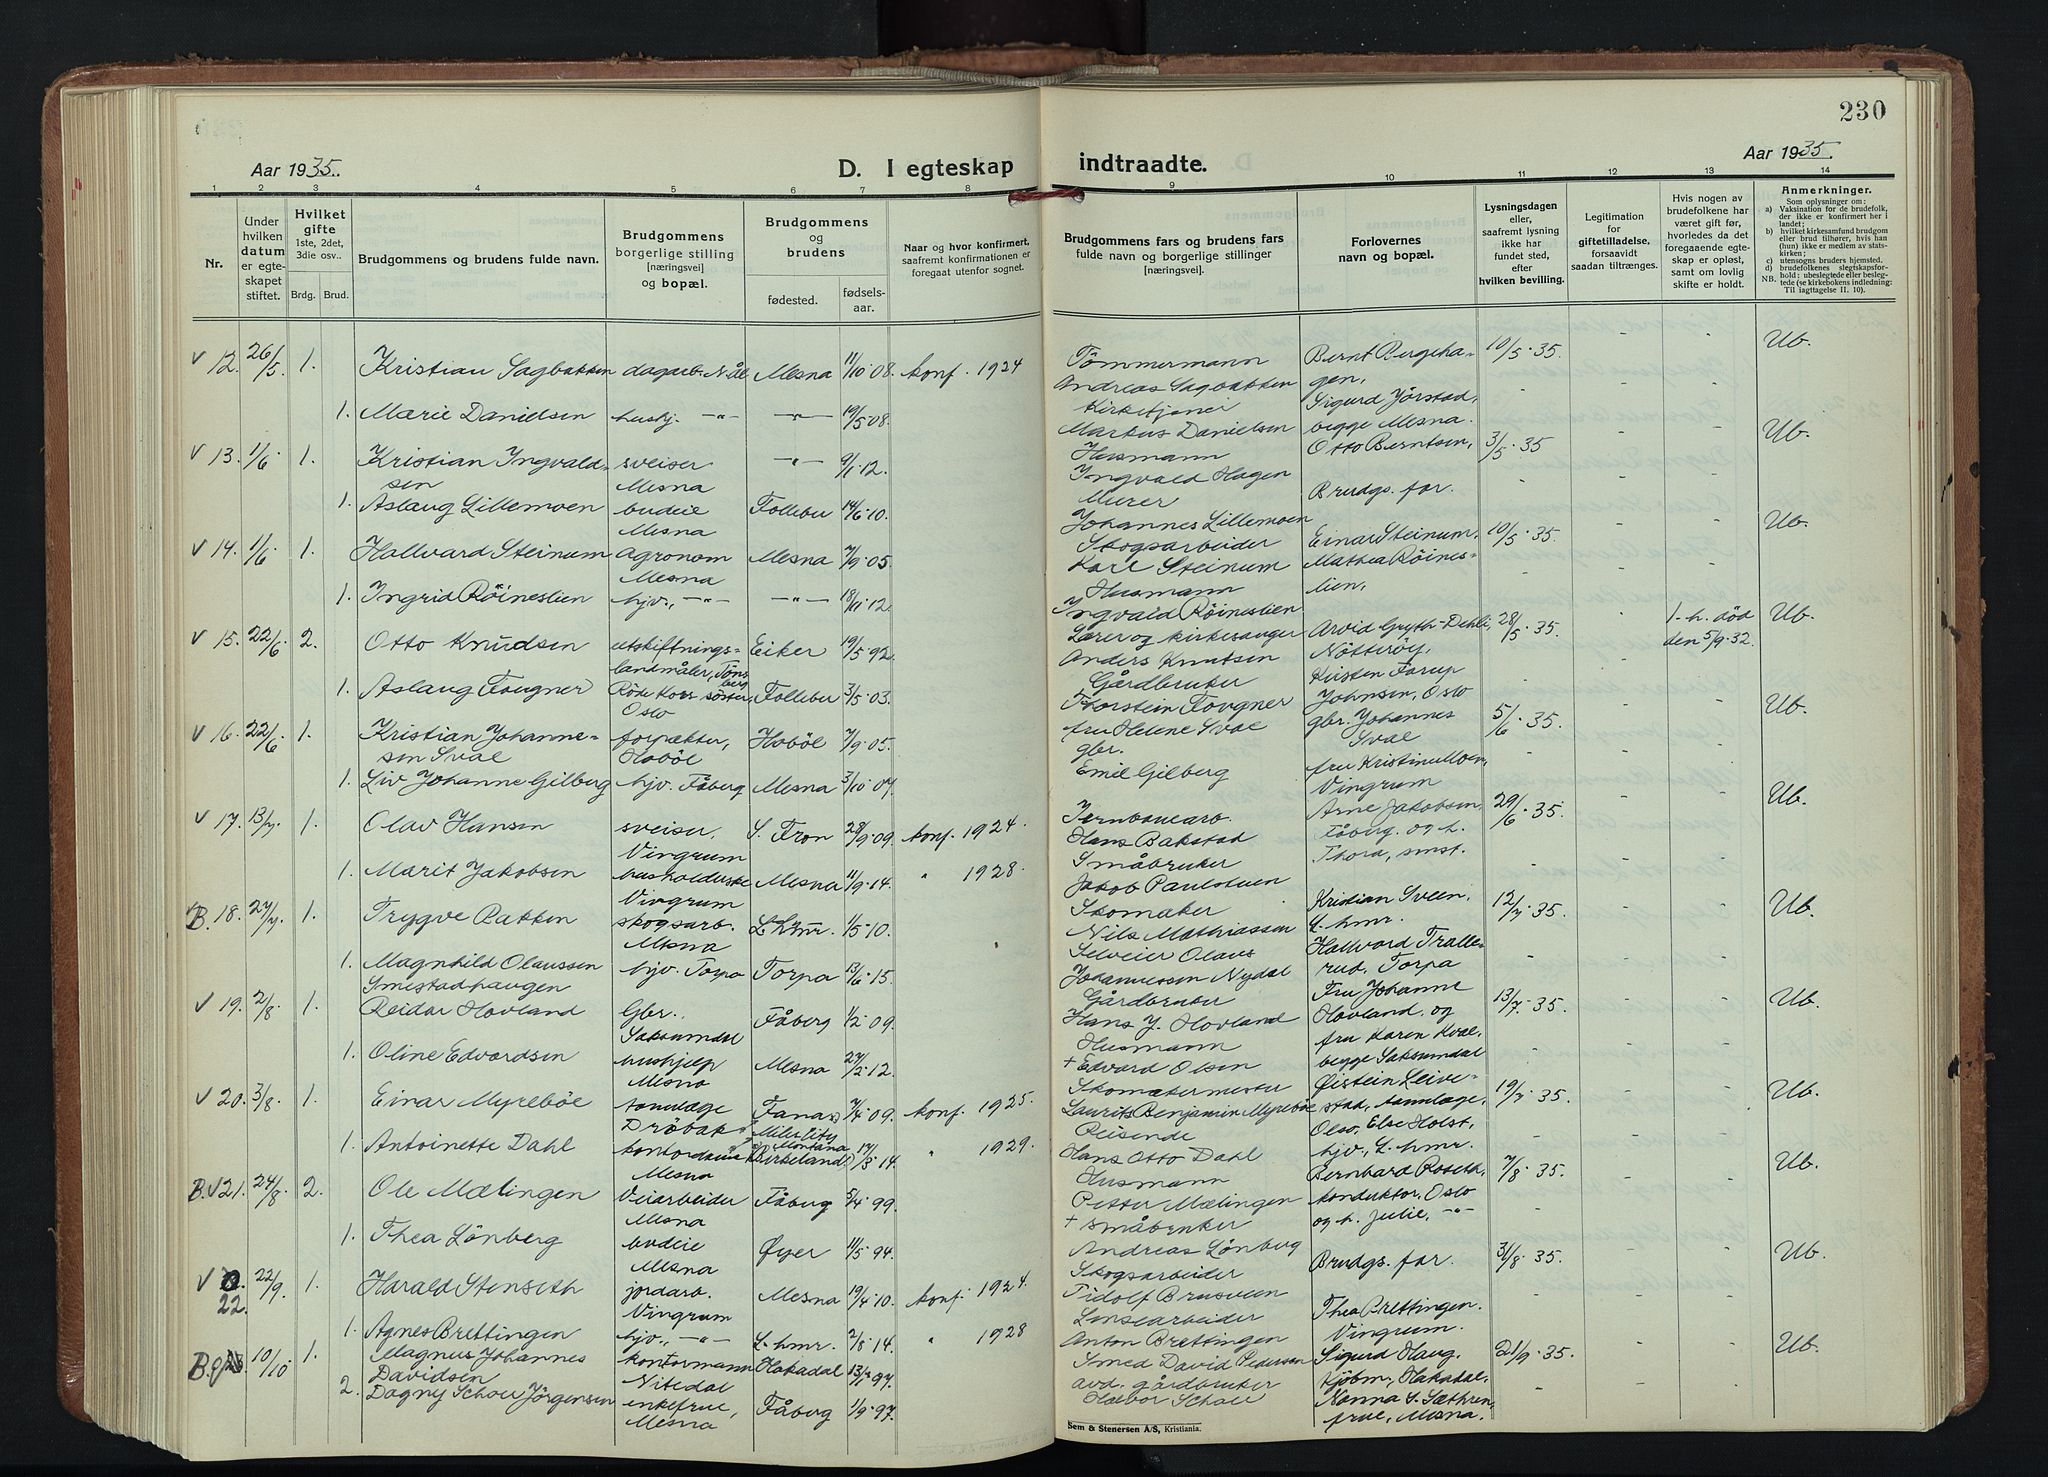 230
Aar 1935.
D. I egteskap
indtraadte.
Aar 1935.
1 2 3 4 5 6 7 8 9 10 11 12 13 14
Nr.
Under hvilken datum er egteskapet stiftet.
Hvilket gifte 1ste, 2det, 3die osv.. Brdg. Brud.
Brudgommens og brudens fulde navn.
Brudgommens borgerlige stilling [næringsvei] og bopæl.
Brudgommens og brudens fødested. fødselsaar.
Naar og hvor konfirmert, saafremt konfirmationen er foregaat utenfor sognet.
Brudgommens fars og brudens fars fulde navn og borgerlige stillinger [næringsvei].
Forlovernes navn og bopæl.
Lysningsdagen eller, saafremt lysning ikke har fundet sted, efter hvilken bevilling.
Legitimation for giftetilladelse, forsaavidt saadan tiltrænges.
Hvis nogen av brudefolkene har været gift før, hvorledes da det foregaaende egteskap er opløst, samt om lovlig skifte er holdt.
Anmerkninger.
Som oplysninger om:
a) Vaksination for de brudefolk, der ikke er konfirmert her i landet;
b) hvilket kirkesamfund brudgom eller brud tilhører, hvis han (hun) ikke er medlem av statskirken;
c) utensogns bruders hjemsted.
d) brudefolkenes slegtskapsforhold: ubeslegtede eller beslegtede (se kirkebokens indledning: Til iagttagelse II. 10).
NB.
V 12. 26/5 1. Kristian Sagbakken dagarb. N. Ål Mesna 11/10-08. konf. 1924 Tömmermann Andreas Sagbakken Bernt Bergehagen, 10/5-35. Ub.
1. Marie Danielsen hushj. -"- -"- 19/5-08. Kirketjener Markus Danielsen Sigurd Jörstad, begge Mesna.
V 13. 1/6 1. Kristian Ingvaldsen sveiser Mesna -"- 9/1-12. Husmann Ingvald Hagen Otto Berntsen, 3/5-35 Ub.
1. Aslaug Lillemoen budeie Mesna Follebu 14/6-10. Murer Johannes Lillemoen Brudgs. far.
V 14. 1/6 1. Hallvard Steinum agronom Mesna Mesna 7/9-05. Skogsarbeider Karl Steinum Einar Steinum, 10/5-35. Ub.
1. Ingrid Röineslien hjv., -"- -"- 18/11-12. Husmann Ingvald Röineslien Mathea Röineslien,
V 15. 22/6. 2. Otto Knudsen utskiftningslandmåler, Tönsberg Eiker 19/5-92. Lærer og kirkesanger Anders Knutsen Arvid Gryth-Dehli, Nötteröy, 28/5-35. 1. h. död den 5/9-32. Ub.
1. Aslaug Fougner Röde Kors söster, Oslo Follebu 3/5-03. Gårdbruker Thorstein Fougner Kirsten Farup Johnsen, Oslo
V 16. 22/6 1. Kristian Johannesen Sval forpakter, Hoböl Hoböl 7/9-05. fru Helene Sval gbr. Johannes Sval 5/6-35. Ub.
1. Liv Johanne Gilberg hjv. Fåberg Mesna 3/10-07. gbr. Emil Gilberg fru Kristine Moen, Vingrum
V 17. 13/7. 1. Olav Hansen sveiser, Vingrum S. Fron 28/9-09. konf. 1924. Jernbanearb. Hans Bakstad Arne Jakobsen, Fåberg. og h. 29/6-35. Ub.
1. Marit Jakobsen husholderske Vingrum Mesna 11/9-14. " 1928. Småbruker Jakob Paulstuen Thora, smst.
B. 18. 27/7. 1. Trygve Bakken skogsarb. Mesna L.hmr. 1/5-10. Skomaker Nils Mathiassen Kristian Sveen, L. hmr. 12/7-35. Ub.
1. Magnhild Olaussen Smestadhaugen hjv. Torpa Torpa 13/6-15. Selveier Olaus Johannessen Nydal Hallvard Trallerud, Torpa
V 19. 2/8 1. Reidar Hovland Gbr., Saksumdal Fåberg 1/2-09. Gårdbruker Hans J. Hovland Fru Johanne Hovland, og 13/7-35. Ub.
1. Oline Edvardsen hushjelp Mesna Mesna 27/2-12. Husmann + Edvard Olsen fru Karen Kval, begge Saksumdal
V 20. 3/8. 1. Einar Myreböe tannlæge Dröbak Fana 7/4-09. konf. 1925. Skomakermester Laurits Benjamin Myreböe Øistein Leivestad, tannlæge, 19/7-35. Ub.
1. Antoinette Dahl Mesna Miles City Montana (Birkeland) 17/3-14. " 1929. Reisende Hans Otto Dahl Oslo, Else Holst, hjv., L. hmr.
B.V 21. 24/8. 2. Ole Mælingen Veiarbeider Mesna Fåberg 5/4-99. Husmann Petter Mælingen Bernhard Roseth, konduktör, Oslo 7/8-35. Ub.
1. Thea Lönberg budeie Mesna Øyer 11/5-94. + småbruker Andreas Lönberg og h. Julie, -"-
V 22. 22/9. 1. Harald Stenseth jordarb. Vingrum Mesna 19/4-10. konf. 1924. Skogsarbeider Tidolf Brusveen Brudgs. far. 31/8-35. Ub.
1. Agnes Brettingen hjv., -"- L. hmr. 2/8-14. " 1928 Linsearbeider Anton Brettingen Thea Brettingen. Vingrum.
B. 23 10/10 1. Magnus Johannes Davidsen kontormann Nitedal Hakadal 13/1-97. Smed David Pedersen Sigurd Haug, Kjöbm, Hakadal, 21/9-35. Ub.
2. Dagny Schou Jörgensen enkefrue, Mesna Fåberg 1/9-97. avd. gårdbruker Halvor Schou Nanna S. Sæthren, frue, Mesna.
Sem & Stenersen A/S, Kristiania.